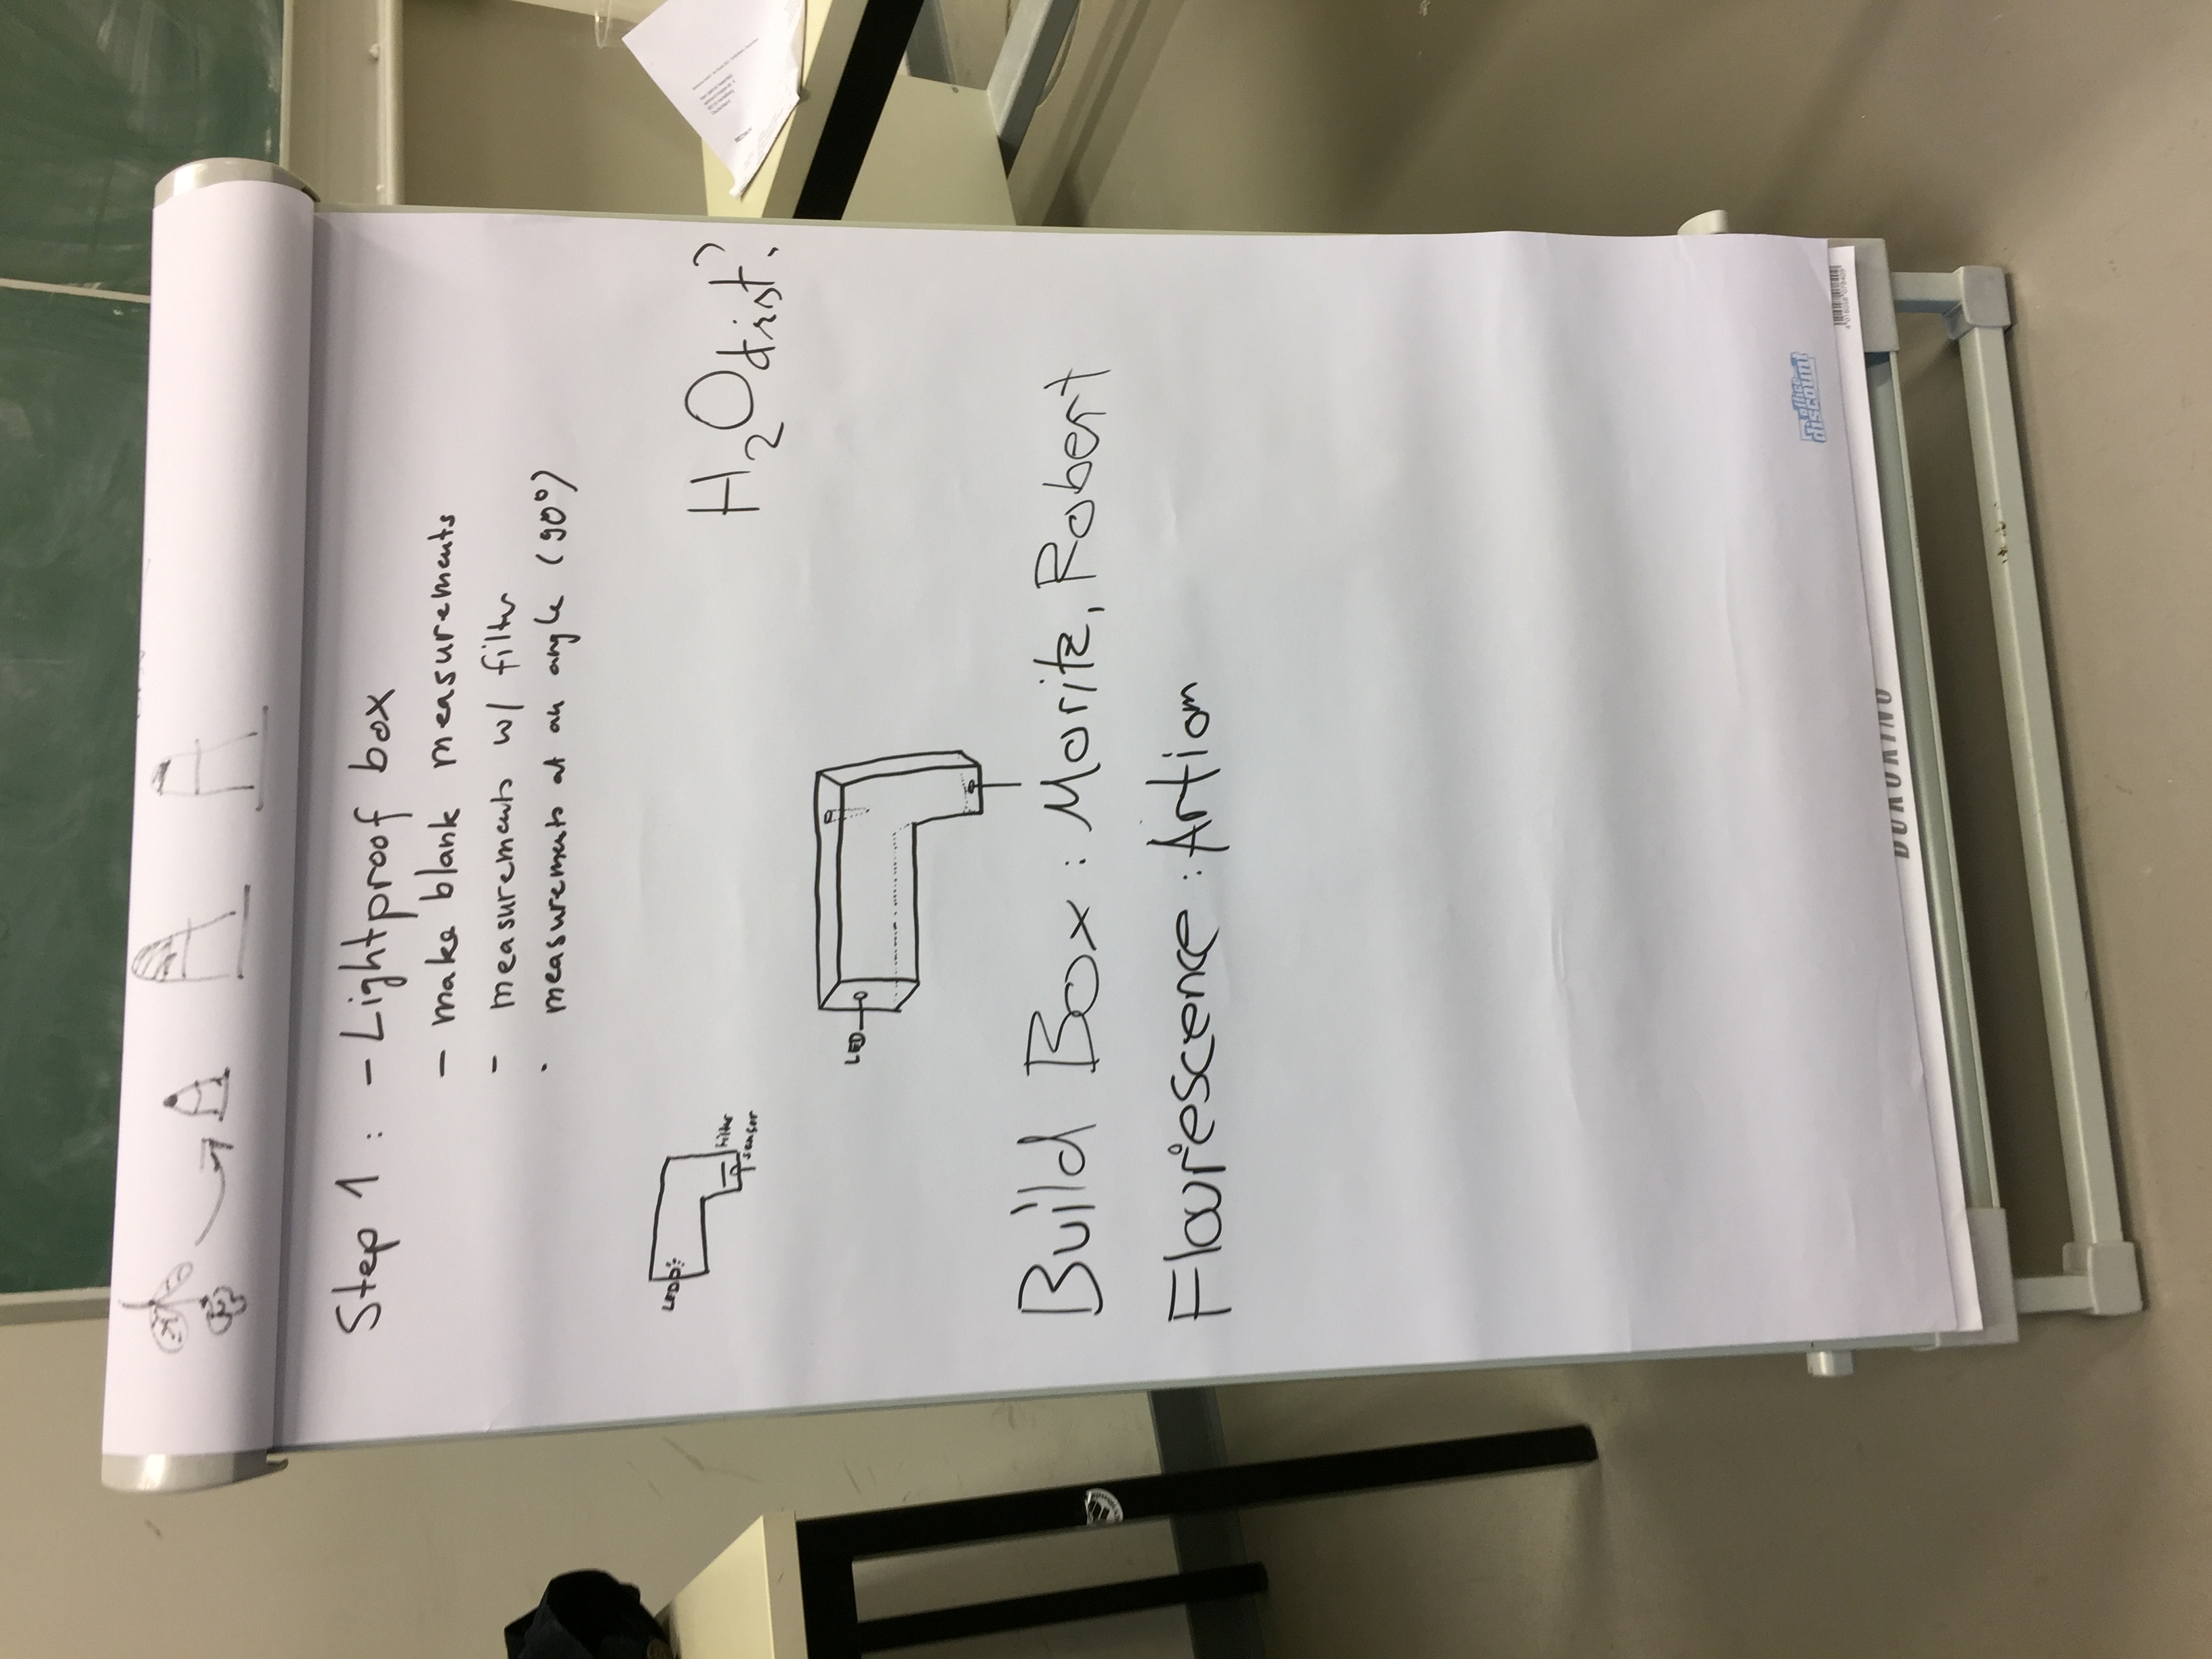 Step 1 : - Lightproof box
- make blank measurements
- measurements w/ filter
· measurements at an angle (90°)
LED
filter
sensor
H2O dist?
LED
Build Box : Moritz, Robert
Flourescence : Artiom
office
discount